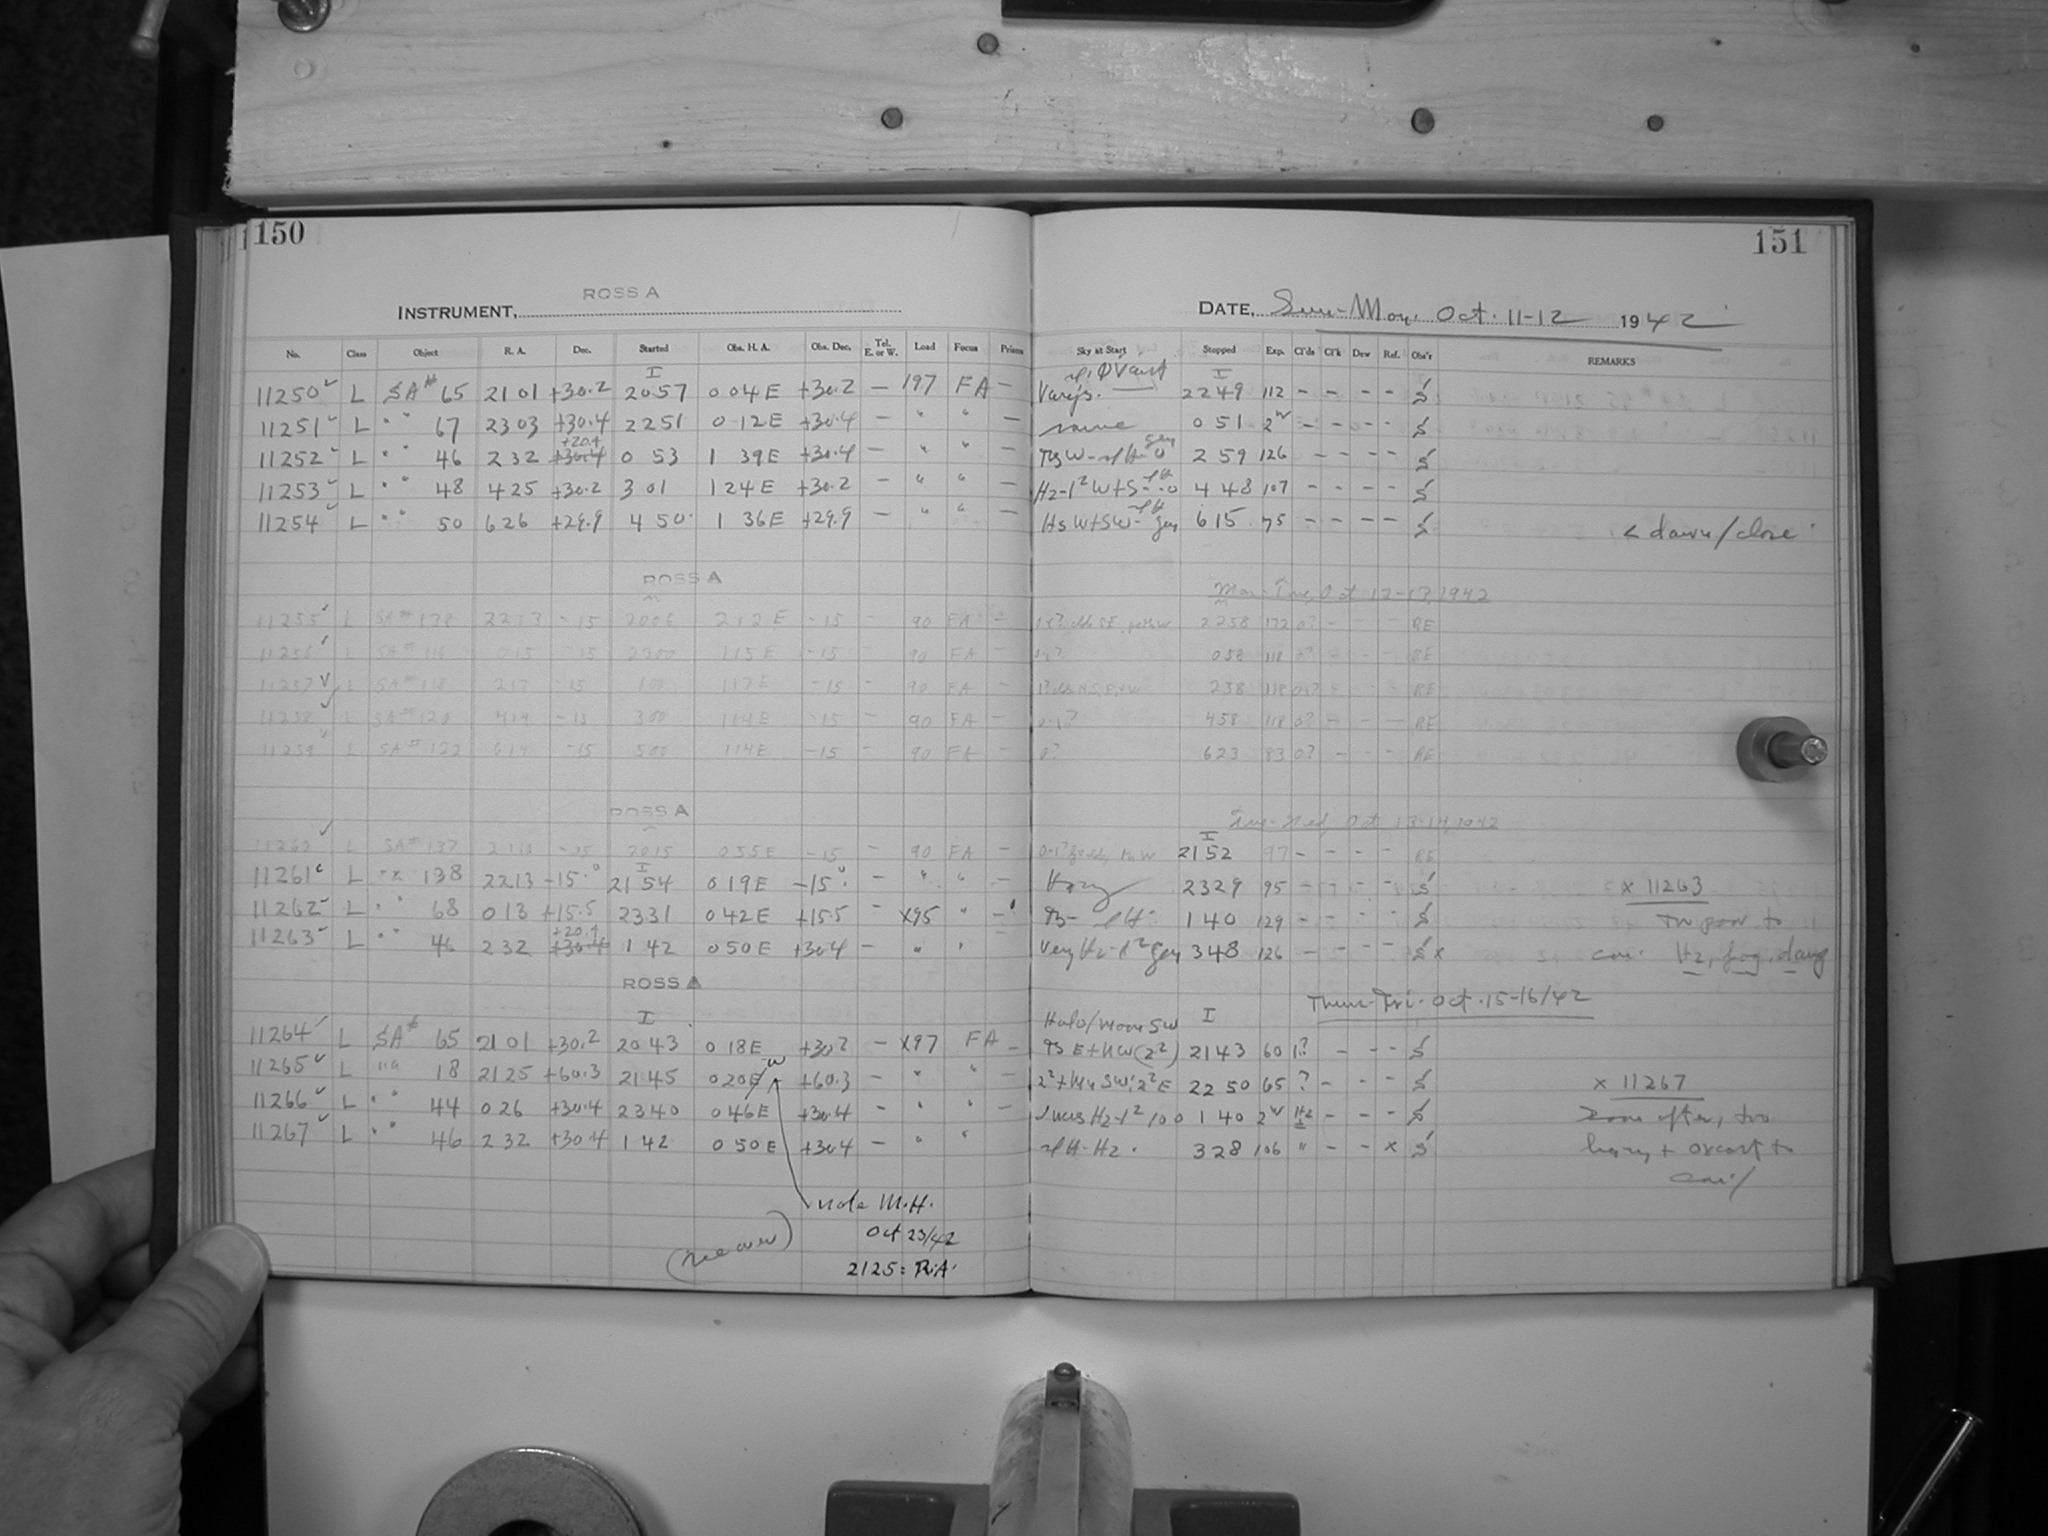 150
151
ROSS A
INSTRUMENT,
DATE, Sun-Mon. Oct. 11-12 1942
No. Class Object R. A. Dec. Started Obs. H. A. Obs. Dec. Tel. E. or W. Load Focus Prisms Sky at Start Stopped Exp. Cl'ds Cl'k Dew Ref. Obs'r REMARKS
I I
11250 ✓ L SA# 65 2101 +30.2 2057 0 04E +30.2 — 197 FA — 2249 112 - - - - S
11251 ✓ L " " 67 2303 +30.4 2251 0 12E +30.4 — " " — same 0 51 2 - - - - S
+20.4
11252 ✓ L " " 46 2 32 +30.4 0 53 1 39E +30.4 — " " — 2 59 126 - - - - S
11253 ✓ L " " 48 4 25 +30.2 3 01 1 24E +30.2 — " " — 4 48 107 - - - - S
11254 ✓ L " " 50 6 26 +29.9 4 50 1 36E +29.9 — " " — 6 15 75 - - - - S
< dawn/close
ROSS A
Mon-Tue, Oct 12-13, 1942
11255 ✓ L SA# 138 2213 -15 2006 2 12 E -15 - 90 FA - 2258 172 0? - - - RE
11256 ✓ L SA# 116 015 -15 2300 115E -15 - 90 FA - 058 118 0? - - - RE
11257 ✓ L SA# 118 217 -15 100 117E -15 - 90 FA - 258 118 - - - RE
11258 ✓ L SA# 120 414 -15 300 114E -15 - 90 FA - 0-1? 458 118 0? - - - RE
11259 ✓ L SA# 122 614 -15 500 114E -15 - 90 FA - 0? 623 83 0? - - - RE
ROSS A
Tue-Wed, Oct 13-14, 1942
I
11260 ✓ L SA# 137 2110 -15 2015 055E -15 - 90 FA - 2152 97 - - - - RE
I
11261 ✓ L " " 138 2213 -15.0 2154 0 19E -15.0 - " " — Hazy 2329 95 - - - - S x 11263
11262 ✓ L " " 68 0 13 +15.5 2331 0 42E +15.5 - X95 " — 1 40 129 - - - - S too poor to
+20.4
11263 ✓ L " " 46 2 32 +30.4 1 42 0 50E +30.4 — " " 3 48 126 - - - - S x con. Hz, fog, damp
ROSS A
Thur-Fri. Oct. 15-16/42
I Halo/moon SW I
11264 ✓ L SA# 65 2101 +30.2 2043 0 18E +30.2 — X97 FA — 2143 60 1? - - - S
W
11265 ✓ L " " 18 2125 +60.3 2145 0 20E +60.3 — " " — 2250 65 ? - - - S x 11267
11266 ✓ L " " 44 0 26 +30.4 2340 0 46E +30.4 — " " — 1 40 2 Hz - - - S
11267 ✓ L " " 46 2 32 +30.4 1 42 0 50E +30.4 — " " 3 28 106 " - - x S hazy + ovcast to
con/
note M.H.
Oct 23/42
2125 = R.A.